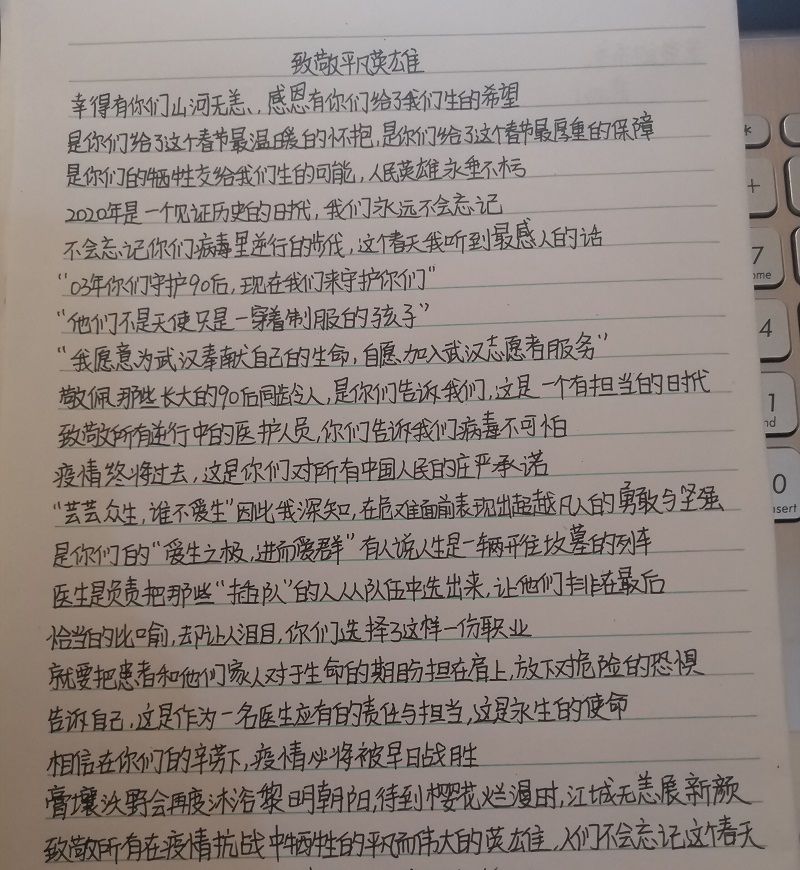 致敬平凡英雄
幸得有你们山河无恙、感恩有你们给了我们生的希望
是你们给了这个春节最温暖的怀抱,是你们给了这个春节最厚重的保障
是你们的牺牲交给我们生的可能,人民英雄永垂不朽
2020年是一个见证历史的时代,我们永远不会忘记
不会忘记你们病毒里逆行的步伐,这个春天我听到最感人的话
“03年你们守护90后,现在我们来守护你们”
“他们不是天使只是一穿着制服的孩子”
“我愿意为武汉奉献自己的生命,自愿加入武汉志愿者服务”
敬佩那些长大的90后同龄人,是你们告诉我们,这是一个有担当的时代
致敬所有逆行中的医护人员,你们告诉我们病毒不可怕
疫情终将过去,这是你们对所有中国人民的庄严承诺
“芸芸众生,谁不爱生”因此我深知,在危难面前表现出超越凡人的勇敢与坚强
是你们的“爱生之极,进而爱群”有人说人生是一辆开往坟墓的列车
医生是负责把那些“插队”的人从队伍中选出来,让他们排在最后
恰当的比喻,却让人泪目,你们选择了这样一份职业
就要把患者和他们家人对于生命的期盼担在肩上,放下对危险的恐惧
告诉自己,这是作为一名医生应有的责任与担当,这是永生的使命
相信在你们的辛劳下,疫情必将被早日战胜
膏壤沃野会再度沐浴黎明朝阳,待到樱花烂漫时,江城无恙展新颜
致敬所有在疫情抗战中牺牲的平凡而伟大的英雄,人们不会忘记这个春天
7
4
1
0